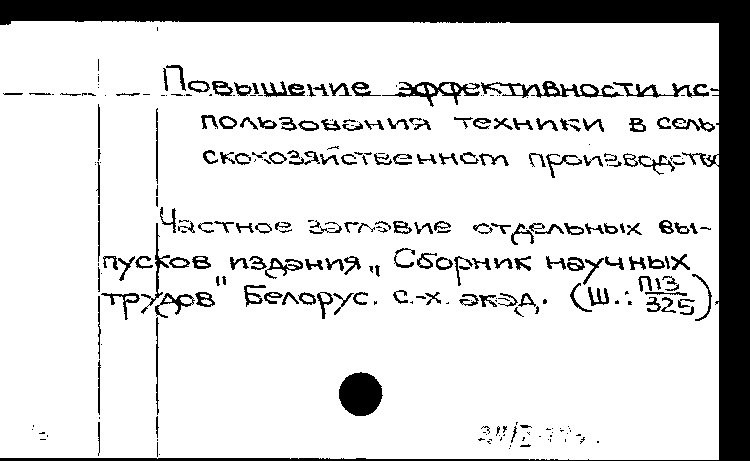 Повышение эффективности ис-
пользования техники в сель-
скохозяйственном производство
Частное заглавие отдельных вы-
пусков издания „Сборник научных
трудов" Белорус. с.-х. акад. (Ш.: П13/325).